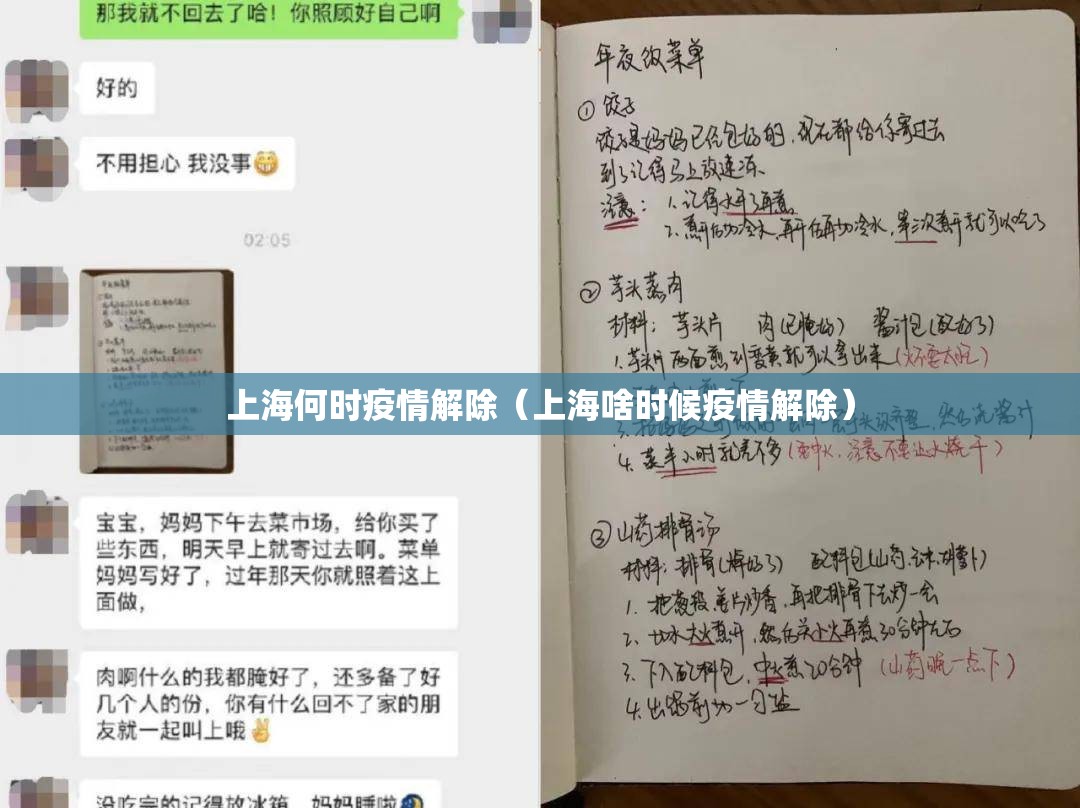 那我就不回去了哈！你照顾好自己啊
好的
不用担心 我没事
02:05
宝宝，妈妈下午去菜市场，给你买了
些东西，明天早上就寄过去啊。菜单
妈妈写好了，过年那天你就照着这上
面做，
肉啊什么的我都腌好了，还多备了好
几个人的份，你有什么回不了家的朋
友就一起叫上哦
没吃完的记得放冰箱，妈妈睡啦
上海何时疫情解除（上海啥时候疫情解除）
年夜饭菜单
① 饺子
饺子是妈妈已经包好的，现在都给你寄过去
到了记得马上放速冻。
注意：1、记得水开了再煮
2、煮开后加冷水，再开后再加冷水，第三次煮开就可以吃了
② 芋头蒸肉
材料：芋头片 肉（已腌好） 酱汁包（配好了）
1. 芋头片两面煎到变黄就可以拿出来（火不要太旺）
4. 蒸半小时就差不多（要中火，注意不要让水烧干）
③ 山药排骨汤
材料：排骨（焯好了） 配料包（山药、玉米、胡萝卜）
1. 把葱段、姜片炒香，再把排骨下去炒一会
2. 加水大火煮开，然后关小火再煮30分钟左右
3. 下入配料包，中火煮20分钟（山药晚一点下）
4. 出锅前加一勺盐